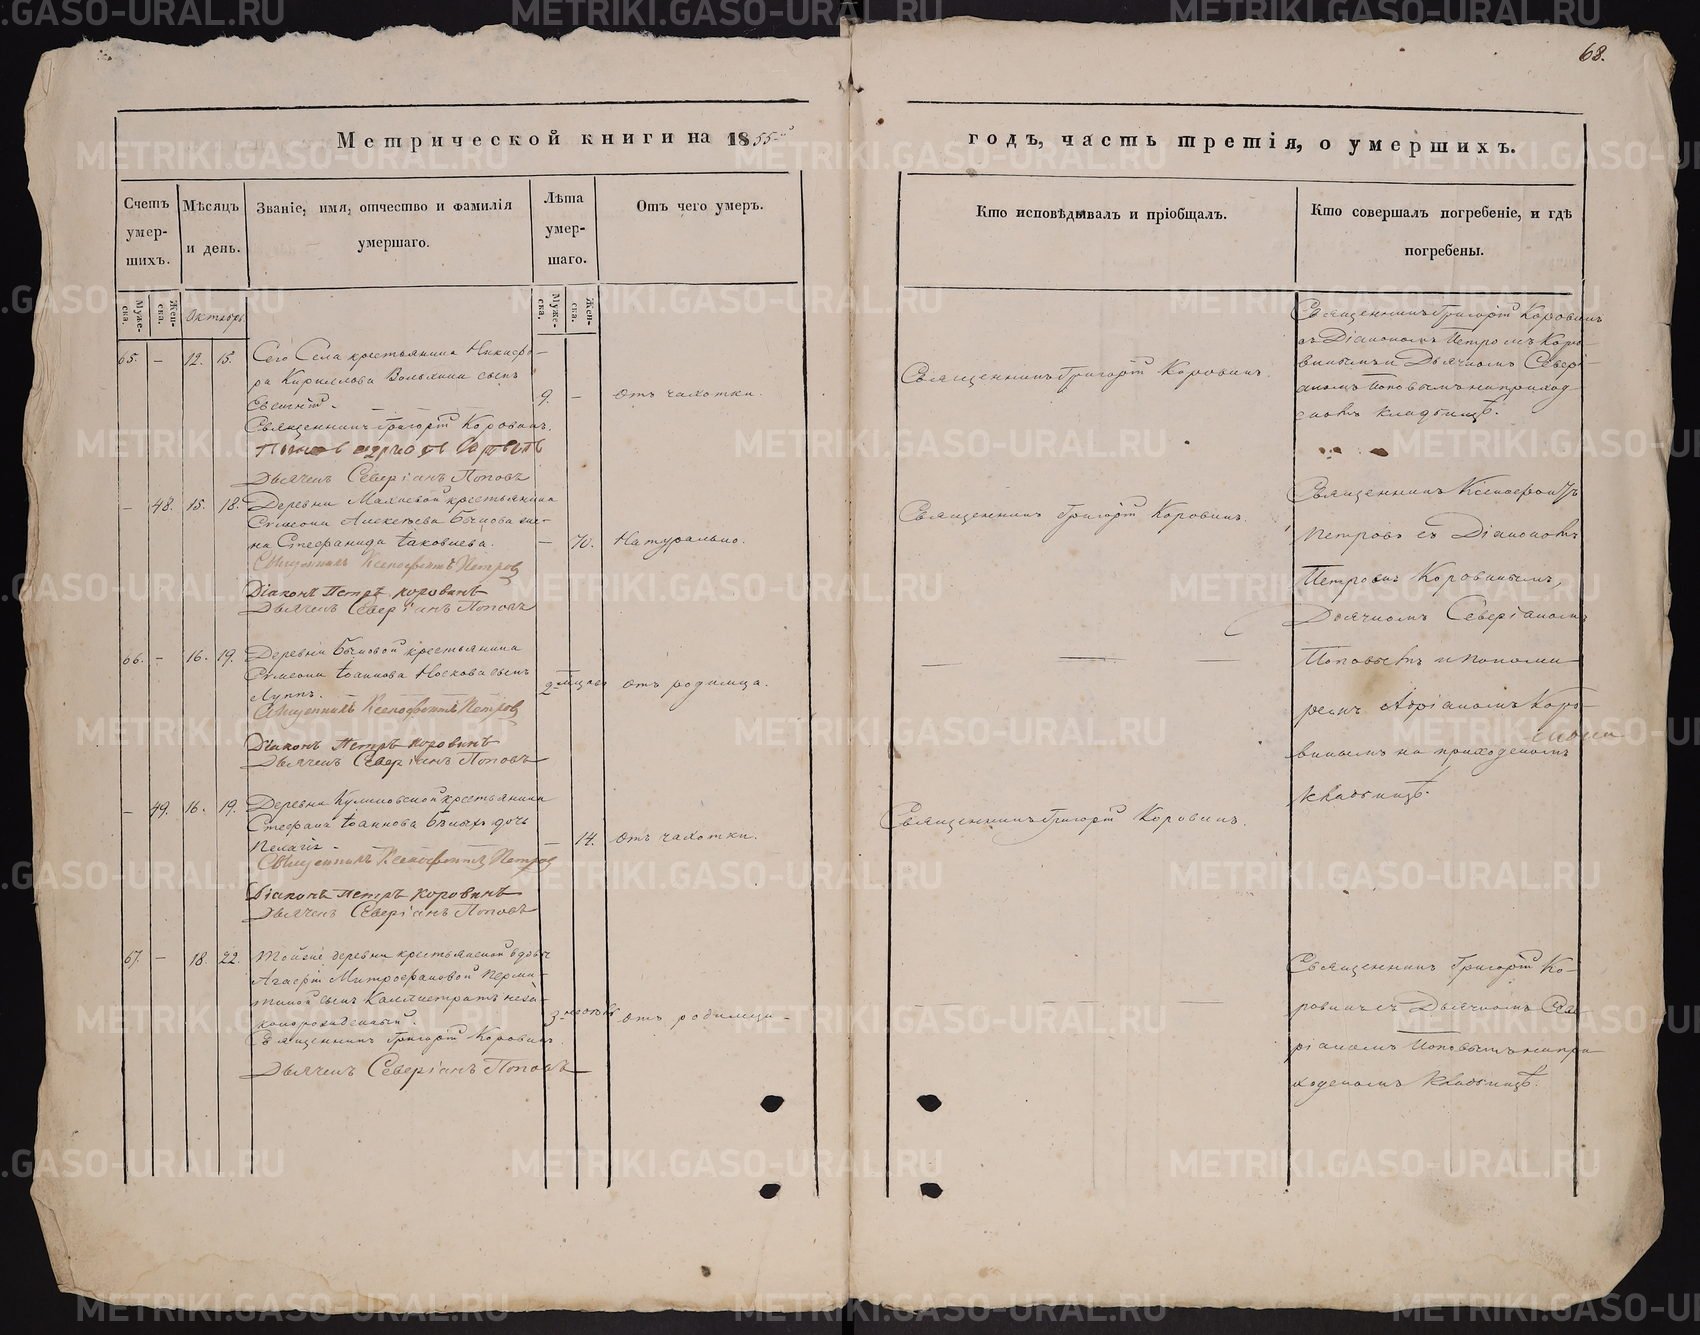 68.
Метрической книги на 1855й
годъ, часть третія, о умершихъ.
Счетъ умер-шихъ.
Мѣсяцъ и день.
Званіе, имя, отчество и фамилія умершаго.
Лѣта умер-шаго.
Отъ чего умеръ.
Кто исповѣдывалъ и пріобщалъ.
Кто совершалъ погребеніе, и гдѣ погребены.
Муже-ска.
Жен-ска.
Октябрь
Муже-ска.
Жен-ска.
65. — 12. 15. Сего Села крестьянина Никифо-
ра Кириллова Волыхина сынъ
Евгеній — 9. — Отъ чахотки.
Священникъ Григорій Коровинъ.
Дьячекъ Северіанъ Поповъ
Священникъ Григорій Коровинъ.
Священникъ Григорій Коровинъ
съ Діакономъ Петромъ Коро-
винымъ и Дьячкомъ Севері-
аномъ Поповымъ на приход-
скомъ кладбищѣ.
— 48. 15. 18. Деревни крестьянина
Симеона Алексѣева Быкова же-
на Стефанида Іаковлева. — 70. Натурально.
Священникъ Ксенофонтъ Петровъ
Діаконъ Петръ Коровинъ
Дьячекъ Северіанъ Поповъ
Священникъ Григорій Коровинъ.
Священникъ Ксенофонтъ
Петровъ съ Діакономъ
Петромъ Коровинымъ,
Дьячкомъ Северіаномъ
Поповымъ и понома-
ремъ Коро-
винымъ на приходскомъ
кладбищѣ.
66. — 16. 19. Деревни Быковой крестьянина
Симеона Іоаннова Носкова сынъ
Луппъ. 2 мѣсяц. Отъ родимца.
Священникъ Ксенофонтъ Петровъ
Діаконъ Петръ Коровинъ
Дьячекъ Северіанъ Поповъ
— 49. 16. 19. Деревни крестьянина
Стефана Іоаннова Бѣлыхъ дочь
Пелагія — 14. Отъ чахотки.
Священникъ Ксенофонтъ Петровъ
Діаконъ Петръ Коровинъ
Дьячекъ Северіанъ Поповъ
Священникъ Григорій Коровинъ.
67. — 18. 22. Тойже деревни крестьянской вдовы
Агафіи Митрофановой
сынъ Каллистратъ неза-
конорожденный. 3 Отъ родимца.
Священникъ Григорій Коровинъ.
Дьячекъ Северіанъ Поповъ
Священникъ Григорій Ко-
ровинъ съ Дьячкомъ Севе-
ріаномъ Поповымъ на при-
ходскомъ кладбищѣ.
METRIKI.GASO-URAL.RU